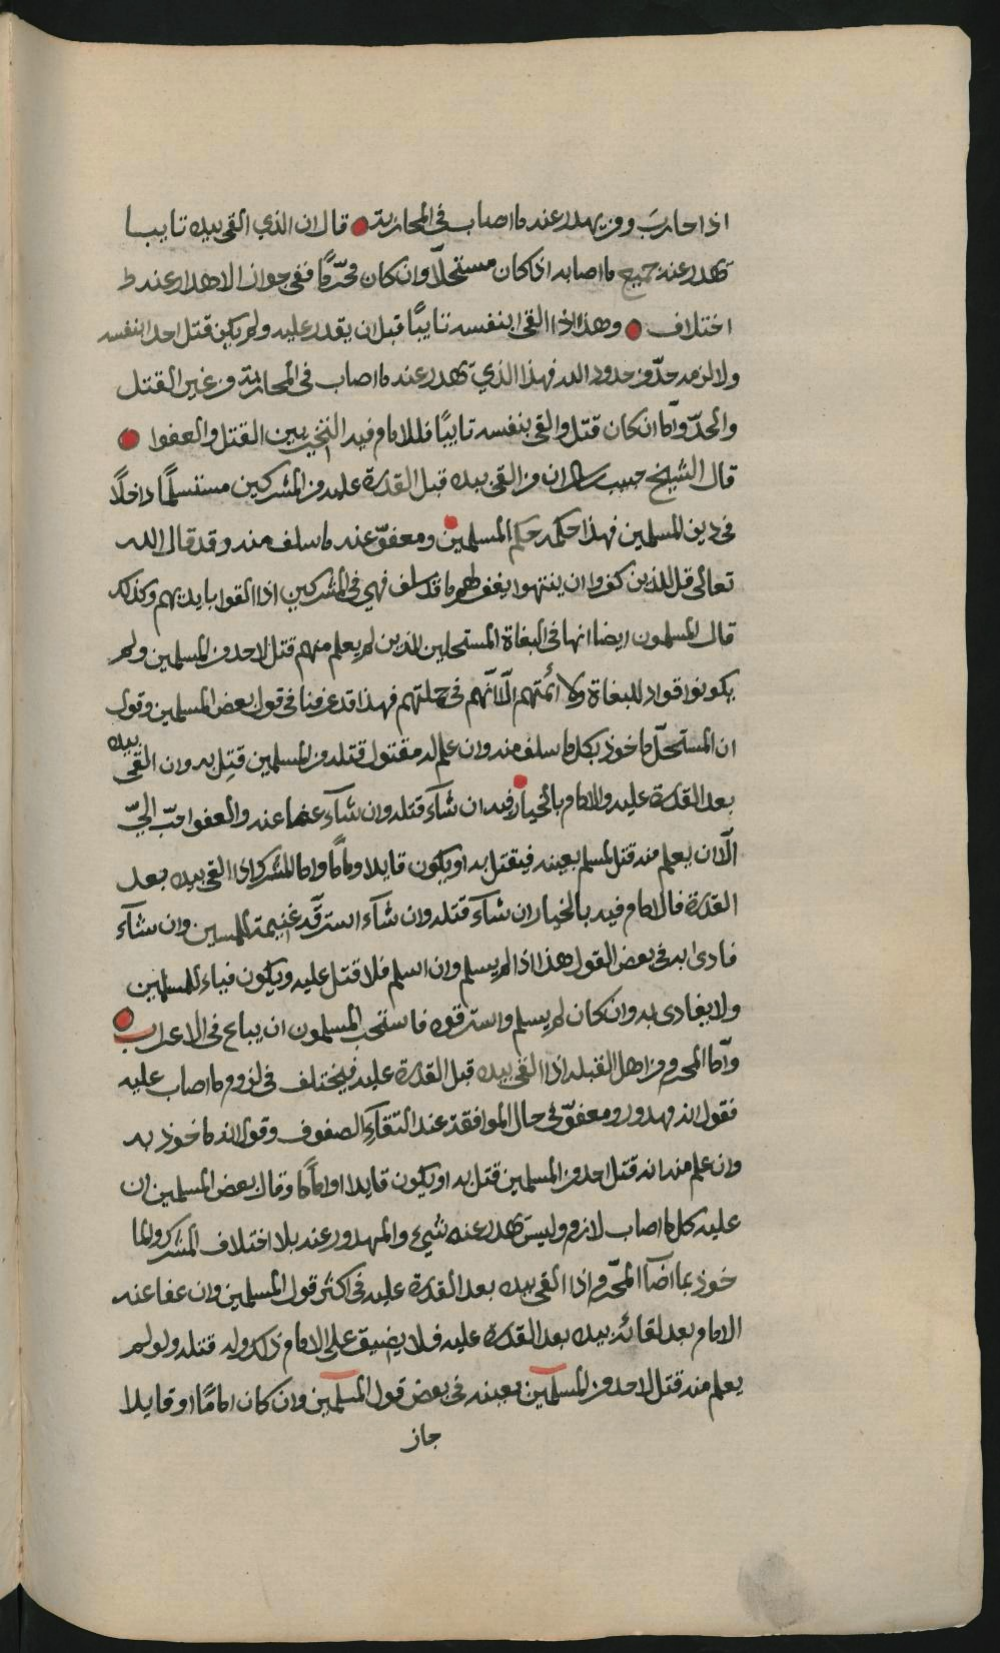 اذا حارب ومن يهدر عنه ما اصاب في المحاربة قال ان الذي القى بيده تايبا
تهدر عنه جميع ما اصابه اذا كان مستحلّا وان كان محرّمًا ففي جواز الاهدار عنه
اختلاف وهذا اذا القى بنفسه تايبًا قبل ان يقدر عليه ولم يكن قتل احدا بنفسه
ولا لزمه حدّ من حدود الله فهذا الذي تهدر عنه ما اصاب في المحاربة من غير القتل
والحدّ وامّا ان كان قتل والقى بنفسه تايبًا فللامام فيه التخيير بين القتل والعفوا
قال الشيخ حبيب بن سالم ان من القى بيده قبل القدرة عليه من المشركين مستسلمًا داخلًا
في دين المسلمين فهذا حكمه حكم المسلمين ومعفوّ عنه ما سلف منه وقد قال الله
تعالى قل للذين كفروا ان ينتهوا يغفر لهم ما قد سلف فهي في المشركين اذا القوا بايديهم وكذلك
قال المسلمون ايضا انها في البغاة المستحلين الذين لم يعلم منهم قتل لاحد من المسلمين ولم
يكونوا قواد للبغاة ولا ائمتهم الّا انّهم في جملتهم فهذا قد عرفنا في قول بعض المسلمين وقول
ان المستحلّ ماخوذ بكل ما سلف منه وان علم له مقتول قتله من المسلمين قتل به وان القى بيده
بعد القدرة عليه والامام بالخيار فيه ان شآء قتله وان شآء عفا عنه والعفو احبّ اليّ
الّا ان يعلم منه قتل المسلم بعينه فيقتل به او يكون قايدا وامامًا واما المشرك اذا القى بيده بعد
القدرة فالامام فيه بالخيار ان شآء قتله وان شآء استرقّه غنيمة للمسلمين وان شآء
فادى به في بعض القول هذا اذا لم يسلم وان اسلم فلا قتل عليه ويكون فيا للمسلمين
ولا يفادى به وان كان لم يسلم واسترقوه فاستحب المسلمون ان يباع في الاعراب
وامّا المحرم من اهل القبله اذا القى بيده قبل القدرة عليه فيختلف في لزوم ما اصاب عليه
فقول انه مهدور ومعفوّ في حال الموافقة عند التقآء الصفوف وقول انه ماخوذ به
وان علم منه انه قتل احد من المسلمين قتل به او يكون قايدا او امامًا وقال بعض المسلمين ان
عليه كل ما اصاب لازم وليس تهدر عنه شيء والمهدور عنه بلا اختلاف المشرك والما
خوذ بما اصآب المحرّم اذا القى بيده بعد القدرة عليه في اكثر قول المسلمين وان عفا عنه
الامام بعد لقائه بيده بعد القدرة عليه فلا يضيق على الامام ذلك وله قتله ولو لم
يعلم منه قتل لاحد من المسلمين بعينه في بعض قول المسلمين وان كان امامًا او قايدا
جاز